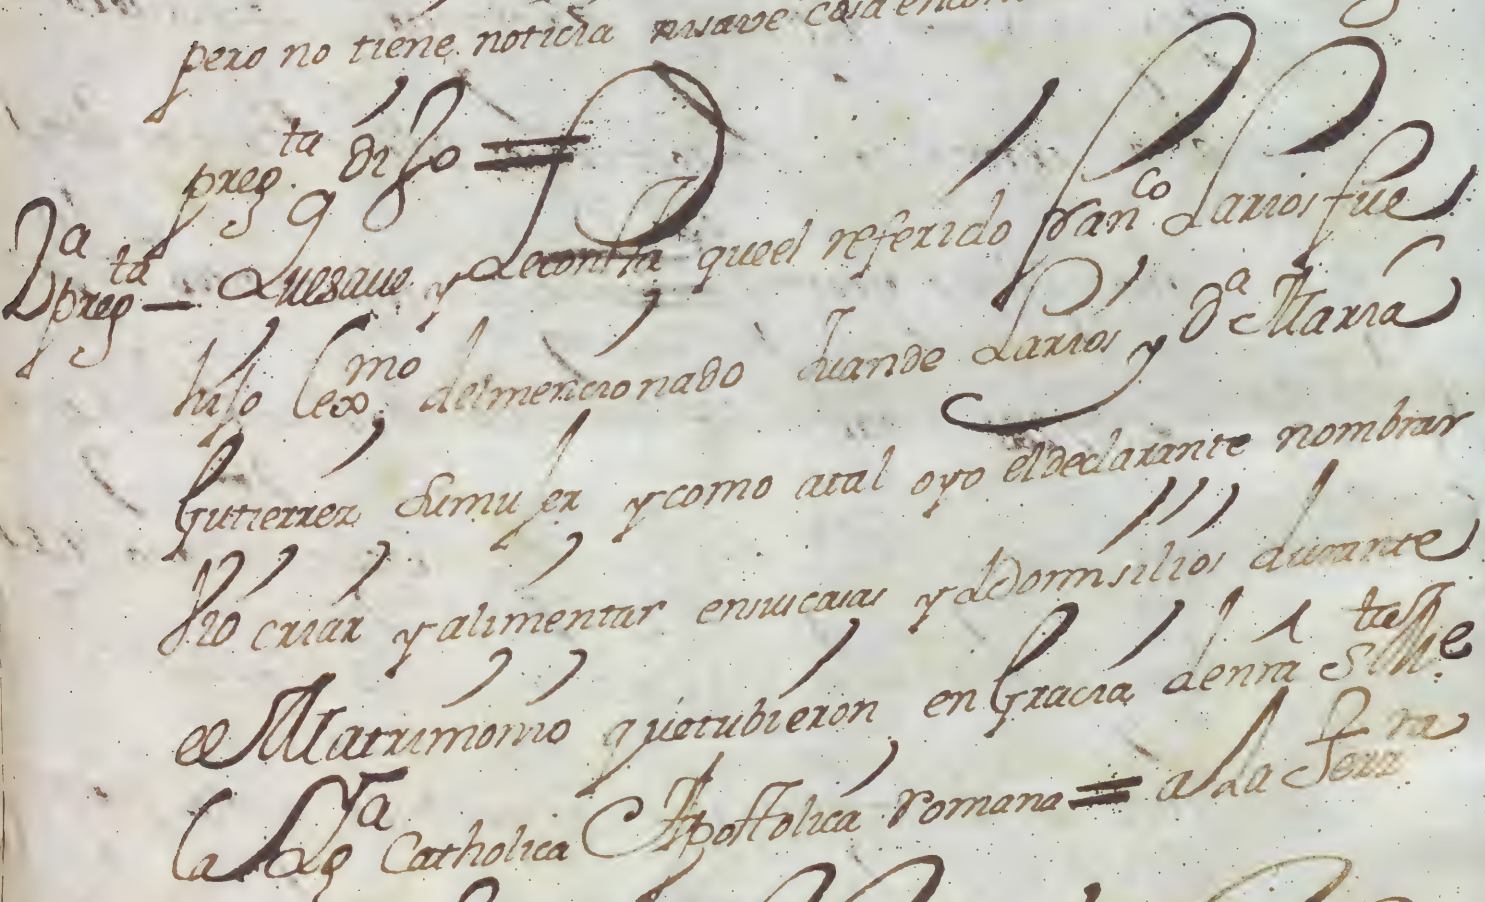 pero no tiene noticia nisave cosa encon
preg.ta diJo =
2a preg.ta — Quesave y Leconsta queel referido Fran.co Larios fue
hiJo Lex.mo delmencionado Juande Larios y Da Maria
Gutierrez sumuJer y como atal oyo eldeclarante nombrar
Vio criar y alimentar ensus casas y Domisilios durante
el Matrimonio quetubieron en Gracia denra S.ta M.e
la Ygla Catholica Apostolica romana = a La Terz.ra